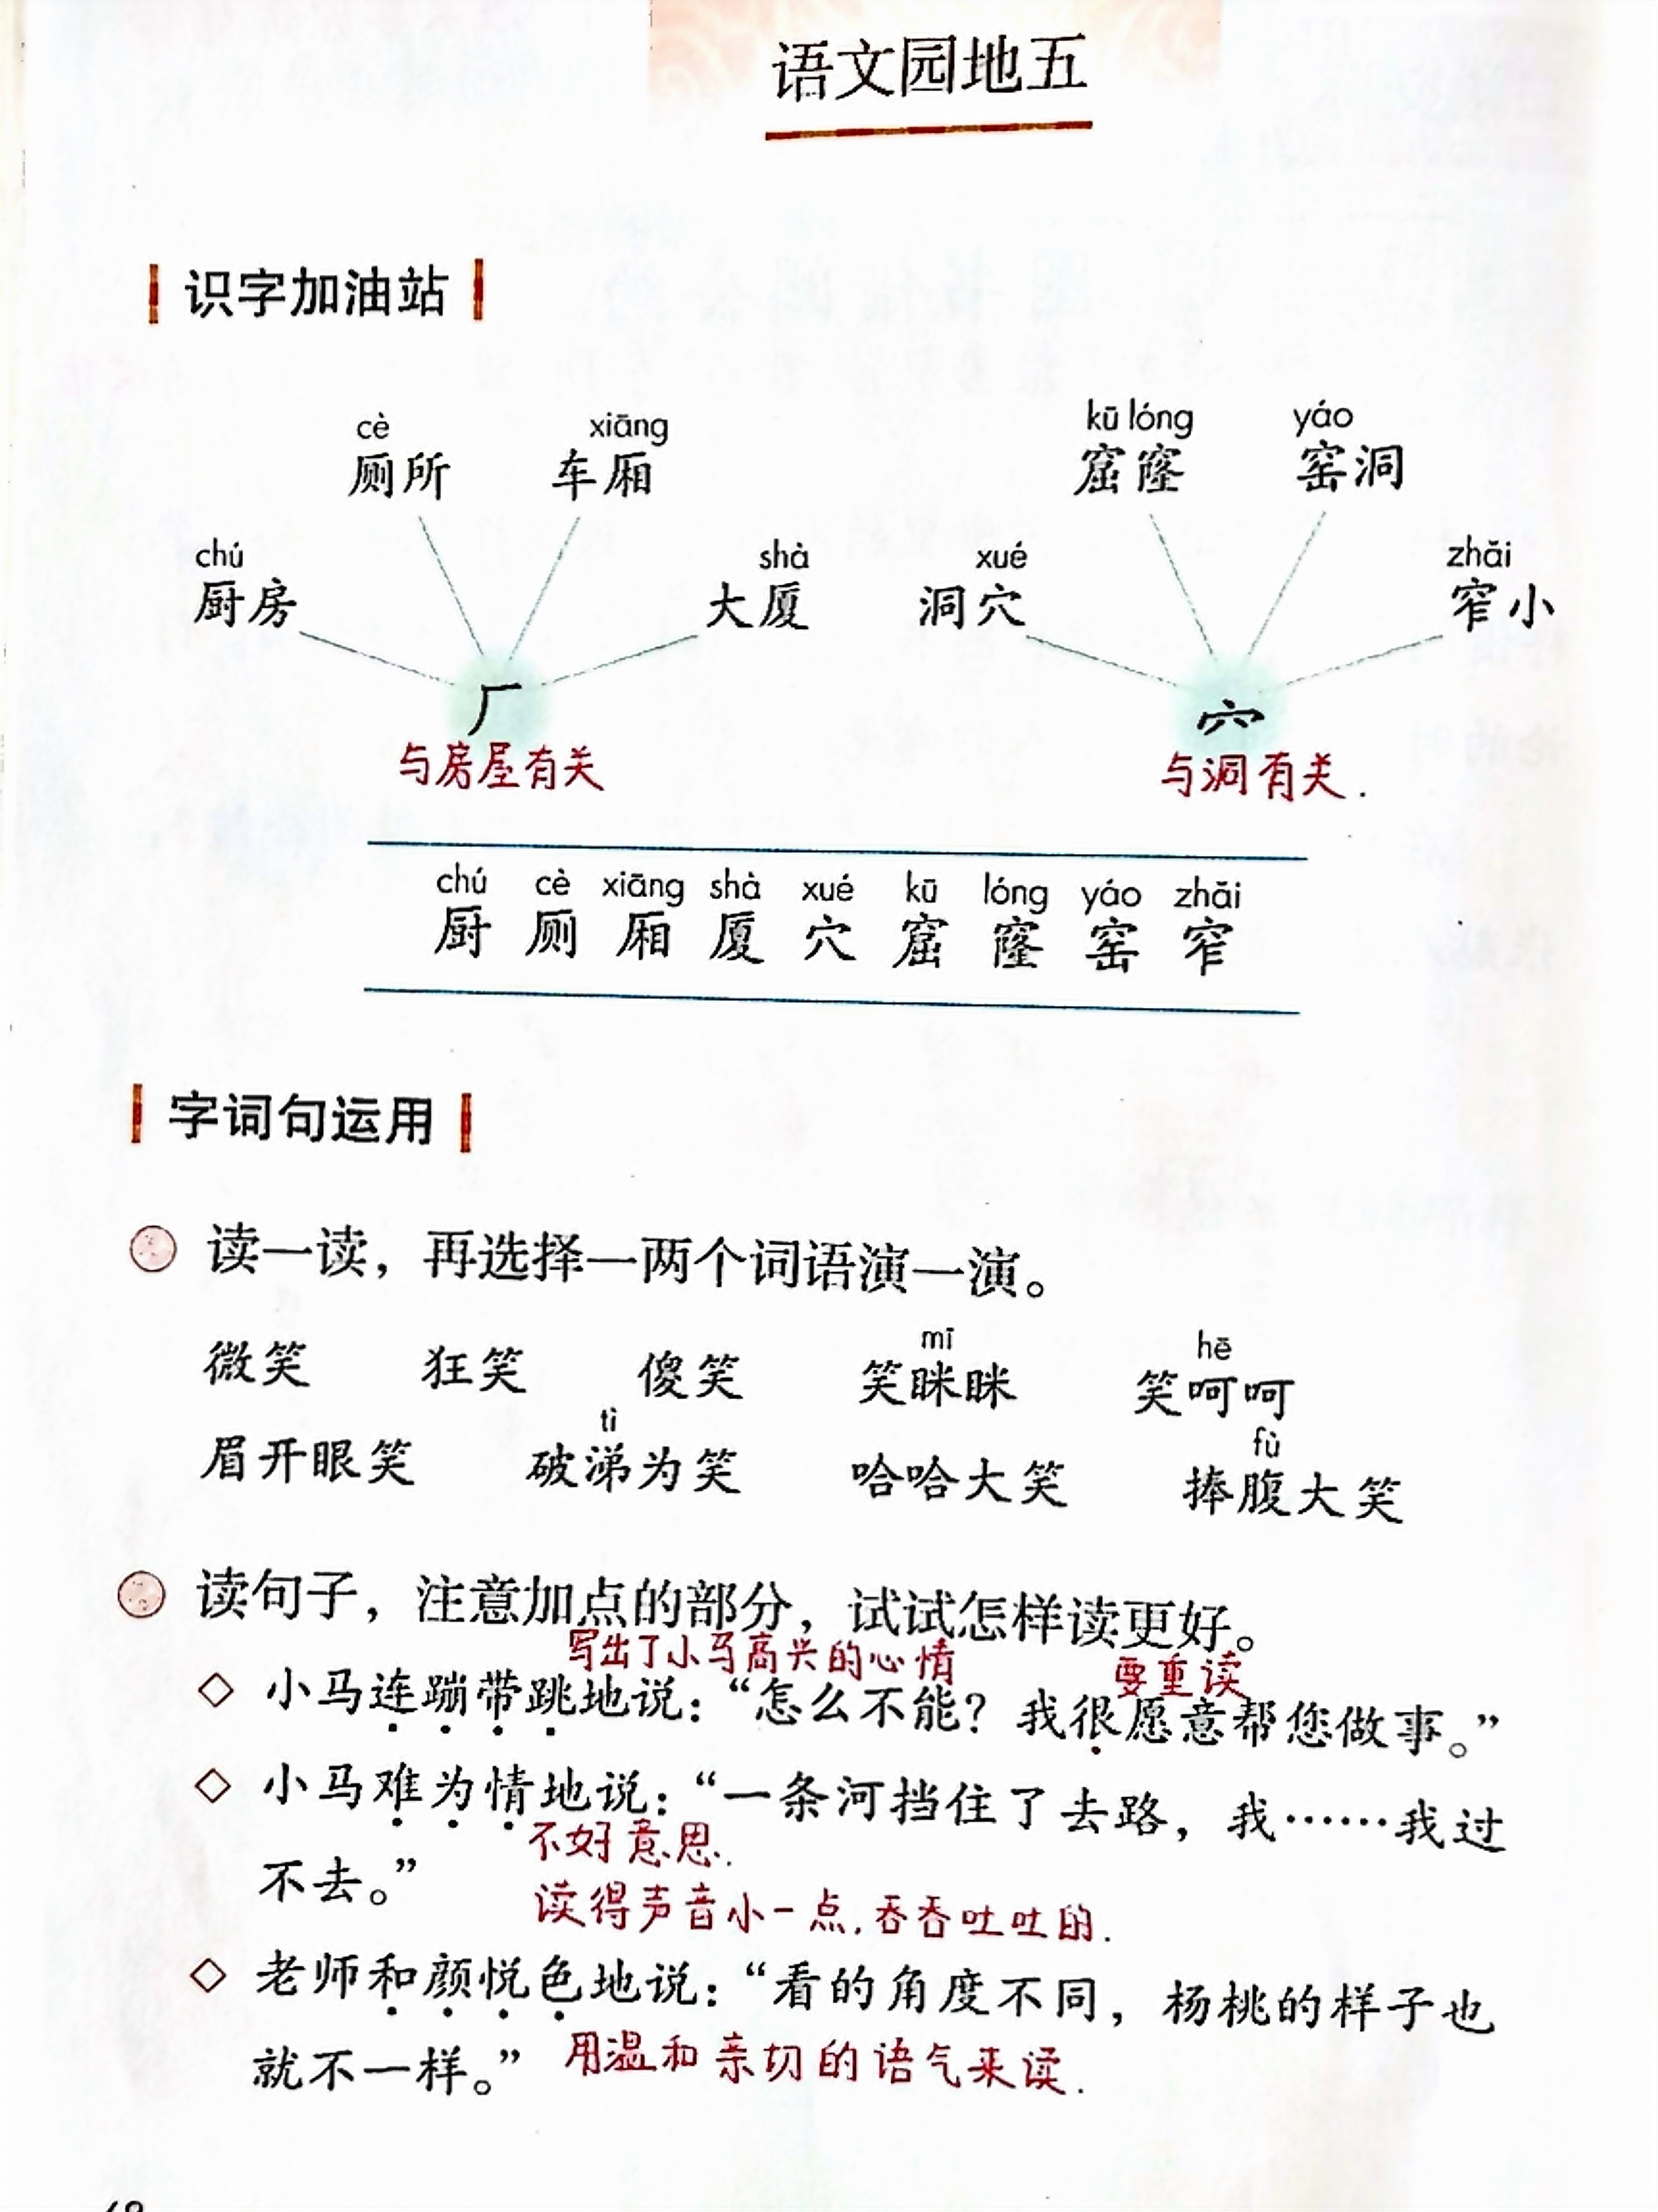 语文园地五
识字加油站
cè xiāng kū lóng yáo
厕所 车厢 窟窿 窑洞
chú shà xué zhǎi
厨房 大厦 洞穴 窄小
厂 穴
与房屋有关 与洞有关.
chú cè xiāng shà xué kū lóng yáo zhǎi
厨 厕 厢 厦 穴 窟 窿 窑 窄
字词句运用
读一读，再选择一两个词语演一演。
mī hē
微笑 狂笑 傻笑 笑眯眯 笑呵呵
tì fù
眉开眼笑 破涕为笑 哈哈大笑 捧腹大笑
读句子，注意加点的部分，试试怎样读更好。
写出了小马高兴的心情 要重读
◇ 小马连蹦带跳地说：“怎么不能？我很愿意帮您做事。”
◇ 小马难为情地说：“一条河挡住了去路，我……我过
不好意思.
不去。”
读得声音小一点,吞吞吐吐的.
◇ 老师和颜悦色地说：“看的角度不同，杨桃的样子也
就不一样。” 用温和亲切的语气来读.